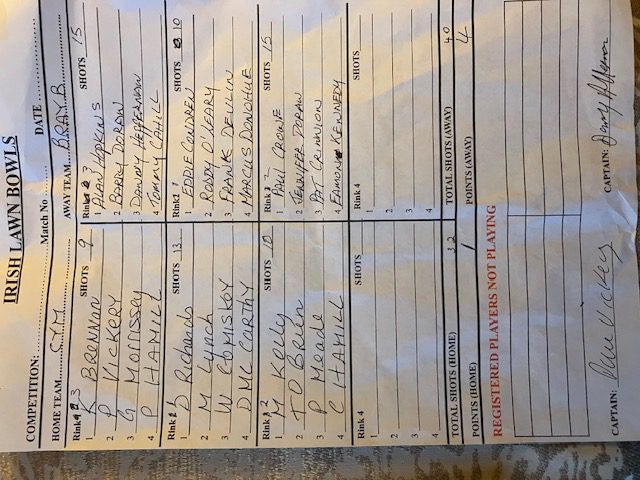 IRISH LAWN BOWLS
COMPETITION: DATE
Match No
HOME TEAM CYM AWAY TEAM BRAY B
Rink 3 SHOTS 9 Rink 3 SHOTS 15
1 K BRENNAN 1 ALAN HOPKINS
2 P VICKERY 2 BARRY DORAN
3 G MORRISSEY 3 DANNY HEFFERNAN
4 P HAMILL 4 TOMMY CAHILL
Rink 1 SHOTS 13 Rink 1 SHOTS 10
1 D Richards 1 EDDIE CONDREN
2 M Lynch 2 RODDY O'LEARY
3 W COMISKEY 3 FRANK DEVLIN
4 D MC CARTHY 4 MARCUS DONOHUE
Rink 2 SHOTS 10 Rink 2 SHOTS 15
1 M Kelly 1 PAUL CROWE
2 T O BRIEN 2 JENNIFER DORAN
3 P Meade 3 PAT CRINNION
4 C HAMILL 4 EAMONN KENNEDY
Rink 4 SHOTS Rink 4 SHOTS
1 1
2 2
3 3
4 4
TOTAL SHOTS (HOME) 32 TOTAL SHOTS (AWAY) 40
POINTS (HOME) 1 POINTS (AWAY) 4
REGISTERED PLAYERS NOT PLAYING
CAPTAIN: Vickery CAPTAIN: Danny Heffernan